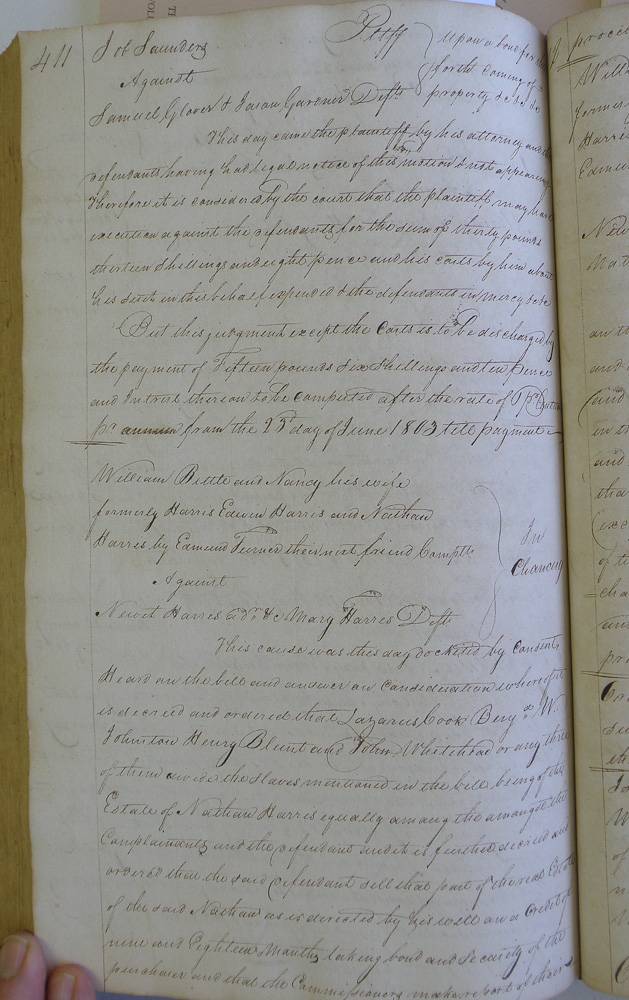 411
Job Saunders Pltff
Against
Samuel Glover & Jason Gardner Defts
upon a bond for the
forth coming of
property &c &c &c
This day came the plaintiff by his attorney and the
defendants having had legal notice of this motion & not appearing
Therefore it is considered by the court that the plaintiff may have
execution against the defendants for the sum of thirty pounds
thirteen shillings and eight pence and his costs by him about
his suit in this behalf expended & the defendants in mercy &c &c
But this judgment except the costs is to be discharged by
the payment of Fifteen pounds six shillings and ten pence
and Intrest thereon to be computed after the rate of pr Centum
pr annum from the 23d day of June 1803 till payment
William Bittle and Nancy his wife
formerly Harris Edwin Harris and Nathan
Harris by Edmund Turner their next friend Complts
Against
In
Chancery
Newit Harris adr &c Mary Harris Defts
This cause was this day docketed by consent
Heard on the bill and answer on Consideration whereof it
is decreed and ordered that Lazarus Cook Benj W.
Johnston Henry Blunt and John Whitehead or any three
of them divide the slaves mentioned in the bill being of the
Estate of Nathan Harris equally among the amongst the
Complainants and the defendant and it is further decreed and
ordered that the said Defendant sell that part of the real Estate
of the said Nathan as is directed by his will on a Credit of
nine and Eighteen Months taking bond and Security of the
purchaser and that the Commissioners make report of their